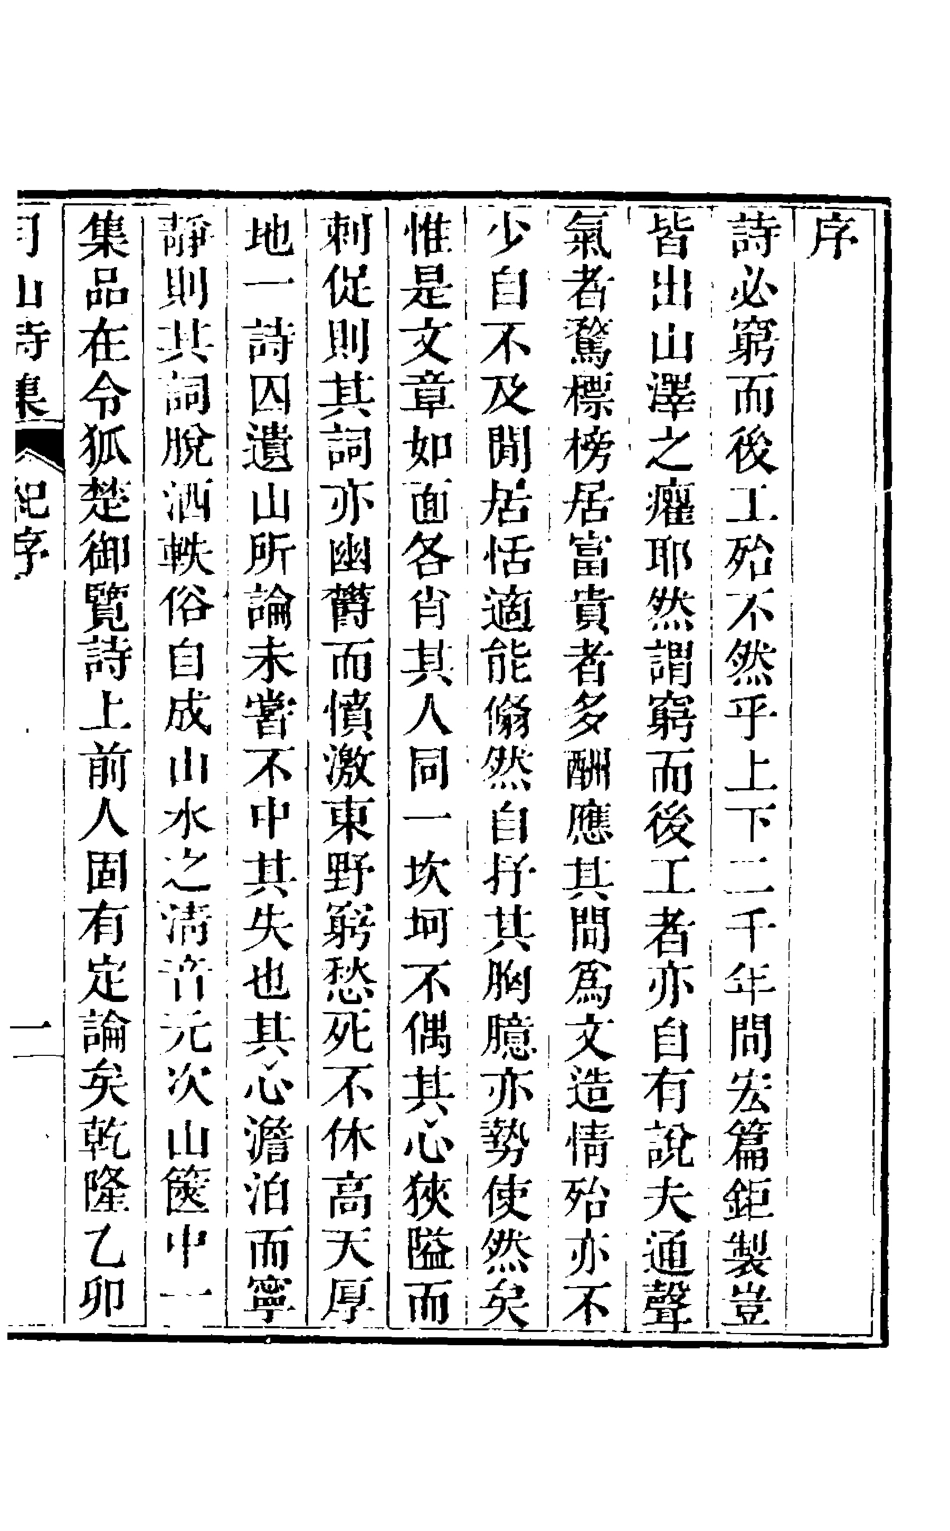 序
詩必窮而後工殆不然乎上下二千年問宏篇鉅製豈
皆出山澤之癯耶然謂窮而後工者亦自有說夫通聲
氣者騖標榜居富貴者多酬應其間爲文造情殆亦不
少自不及閒居恬適能翛然自抒其胸臆亦勢使然矣
惟是文章如面各肖其人同一坎坷不偶其心狹隘而
刺促則其詞亦幽鬱而憤激東野窮愁死不休高天厚
地一詩囚遺山所論未嘗不中其失也其心澹泊而寧
靜則其詞脫洒軼俗自成山水之清音元次山篋中一
集品在令狐楚御覽詩上前人固有定論矣乾隆乙卯
月山詩集 紀序 一